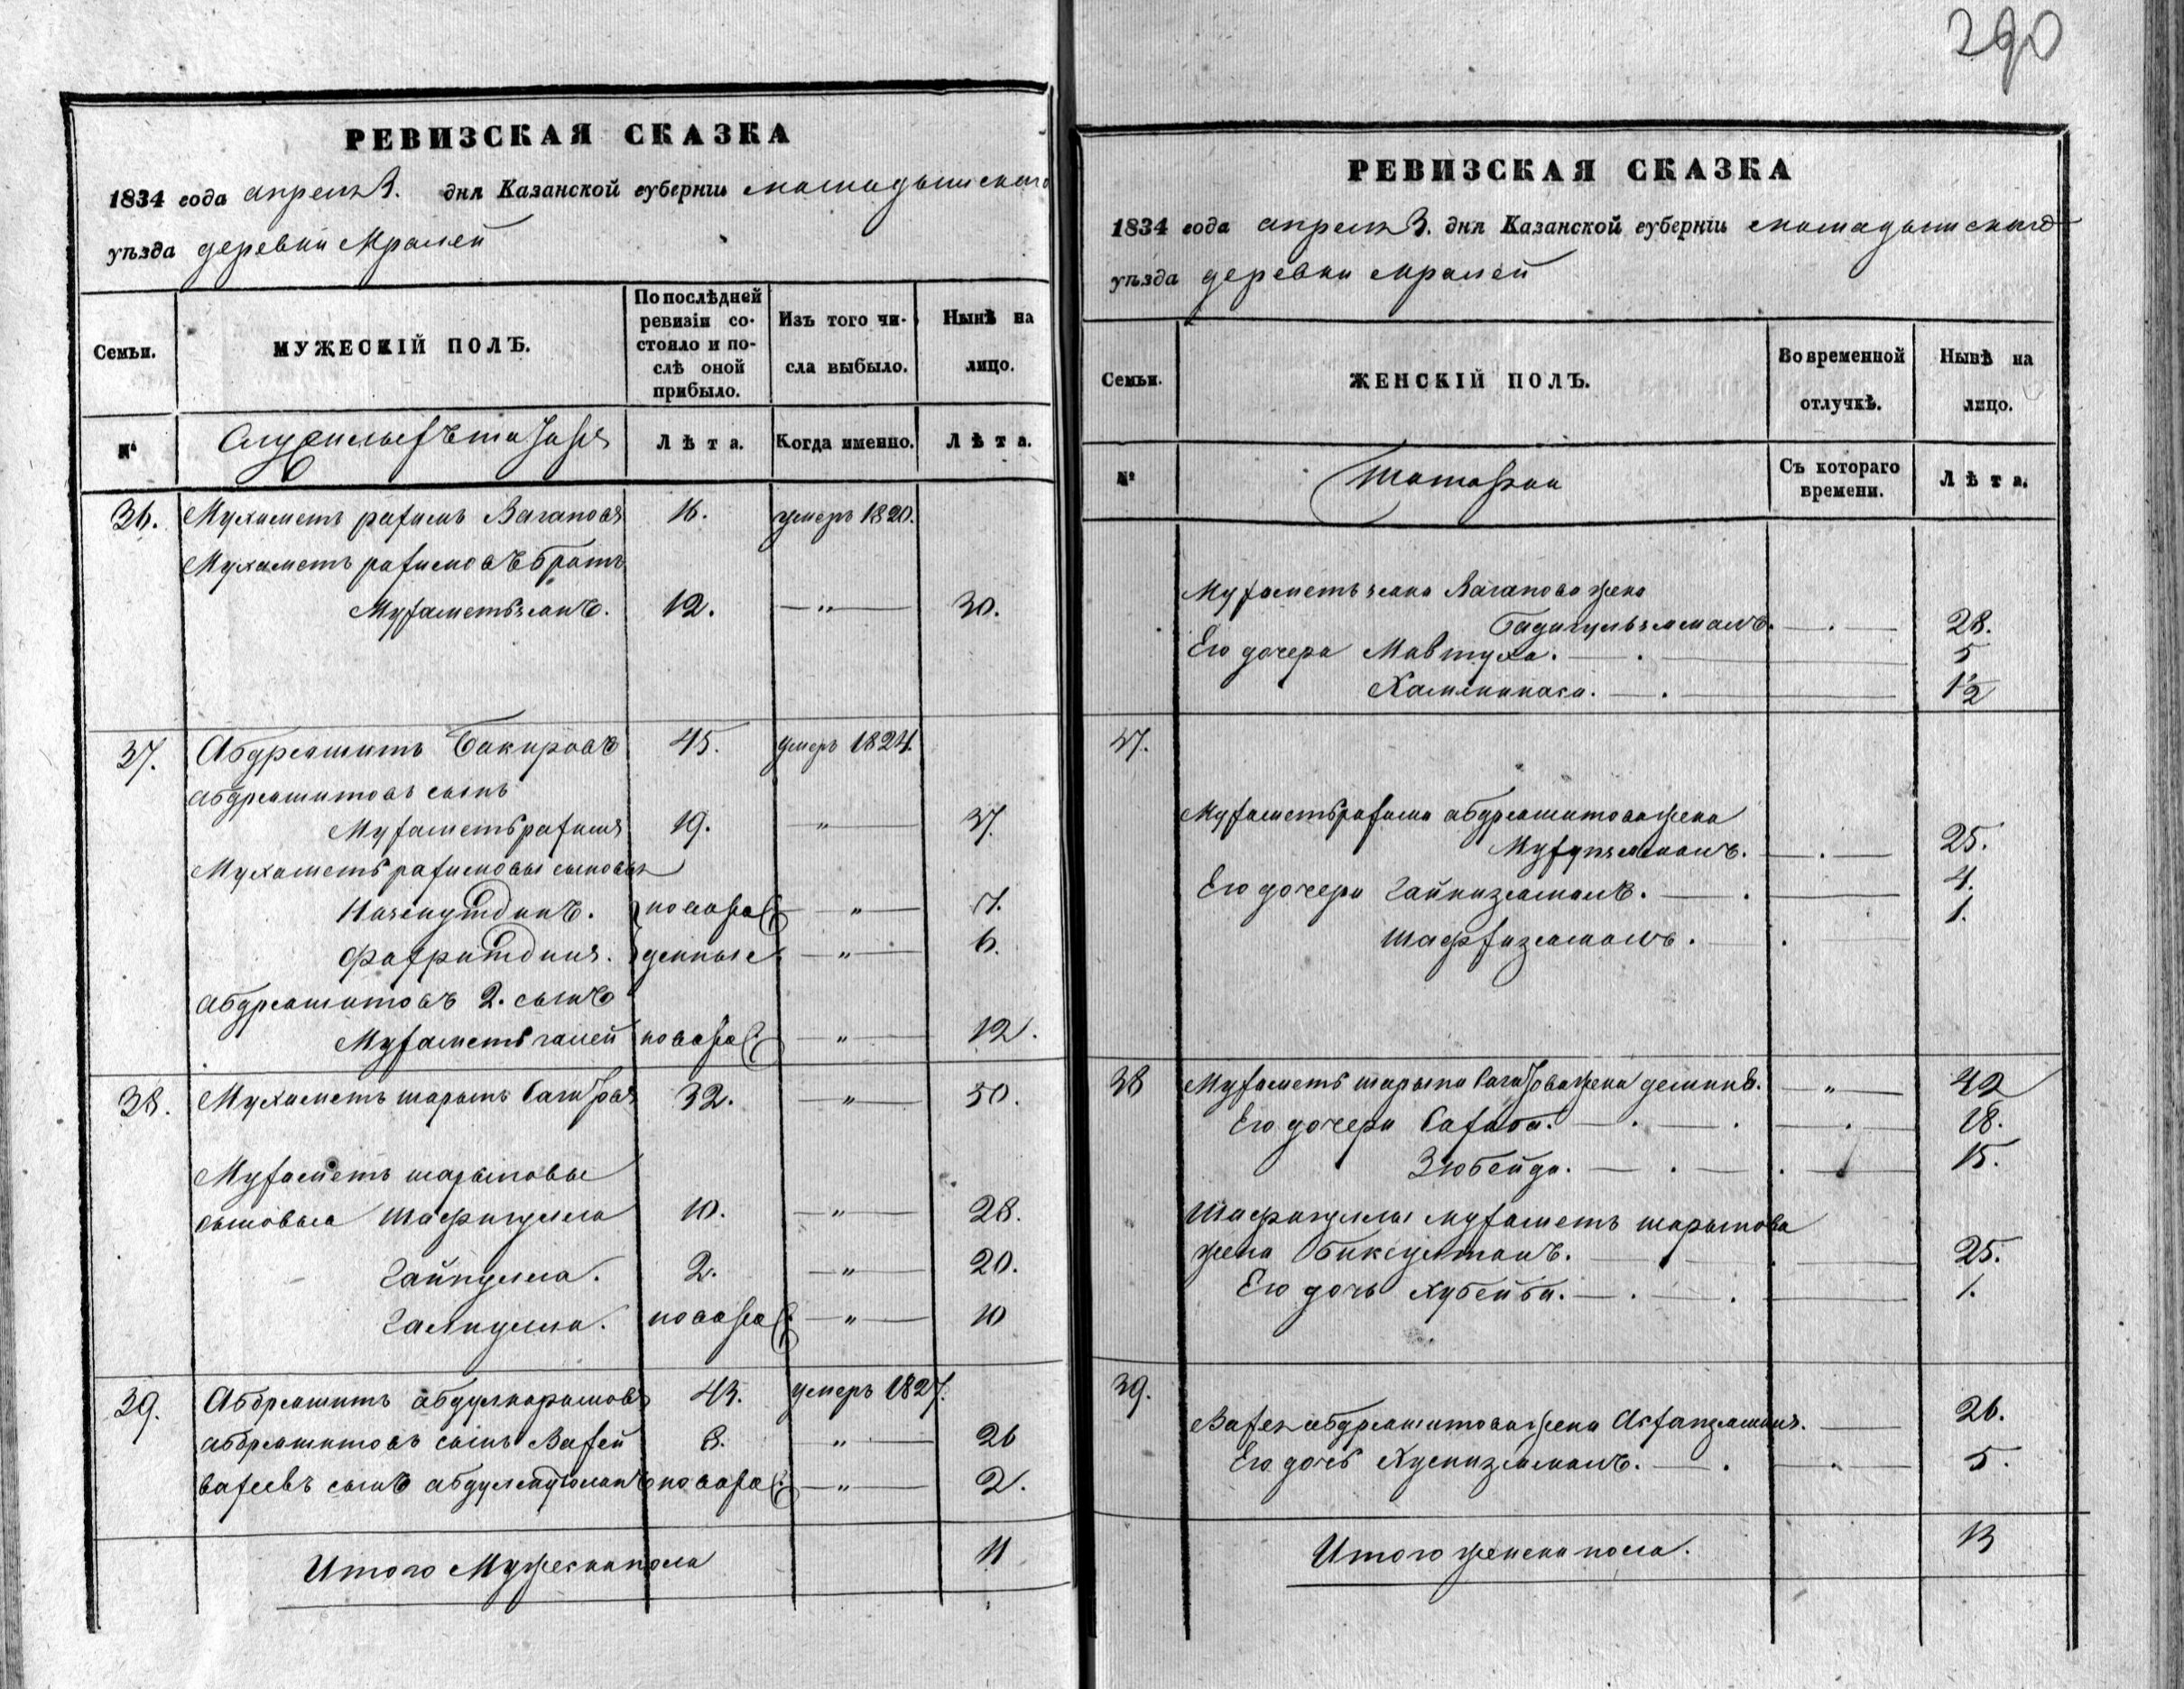 290
РЕВИЗСКАЯ СКАЗКА
1834 года апреля 3. дня Казанской губерніи мамадышскаго
уѣзда деревни
Семьи.
МУЖЕСКІЙ ПОЛЪ.
По послѣдней ревизіи состояло и послѣ оной прибыло.
Изъ того числа выбыло.
Нынѣ на лицо.
№
татаръ
Лѣта.
Когда именно.
Лѣта.
36. Мухаметъ рахимъ Вагаповъ 16. умеръ 1820.
Мухаметъ рахимовъ братъ
Мухаметзянъ. 12. — " — 30.
37. Абдрешитъ Бакировъ 45. умеръ 1824.
абдрешитовъ сынъ
Мухаметрахимъ 19. " — 37.
Мухаметъ рахимовы сыновья
новорож — " — 7.
Фахритдинъ. денные — " — 6.
абдрешитовъ 2. сынъ
Мухаметъ галей новорож: — " — 12.
38. Мухаметъ шарыпъ 32. — " — 50.
Мухаметъ шарыповы
сыновья Шафигулла 10. — " — 28.
Гайнулла. 2. — " — 20.
Галиулла. новорож: — " — 10
39. Абдрешитъ абдулкаримовъ 43. умеръ 1827.
абдрешитовъ сынъ Вахей 8. " — 26
вахеевъ сынъ новорож: — " — 2.
Итого Мужеска пола 11
РЕВИЗСКАЯ СКАЗКА
1834 года апреля 3. дня Казанской губерніи мамадышскаго
уѣзда деревни
Семьи.
ЖЕНСКІЙ ПОЛЪ.
Во временной отлучкѣ.
Нынѣ на лицо.
№
татарки
Съ котораго времени.
Лѣта.
Мухаметзяна Вагапова жена
— . — 28.
Его дочери Мавтуха. — . — 5
— . — 1½
37.
Мухаметрахима абдрешитова жена
— . — 25.
Его дочери Гайнизямалъ. — . — 4.
Шафизямалъ. — . — 1.
38 Мухаметъ шарыпа жена — " — 42
Его дочери Сахиба. — . — . — 18.
Зюбейда. — . — . — 15.
Шафигуллы мухаметъ шарыпова
жена Биксултанъ. — . — 25.
Его дочь Хубейба. — . — . — 1.
39.
Вахея абдрешитова жена — 26.
Его дочь Хуснизямалъ. — . — . — 5.
Итого женска пола. 13